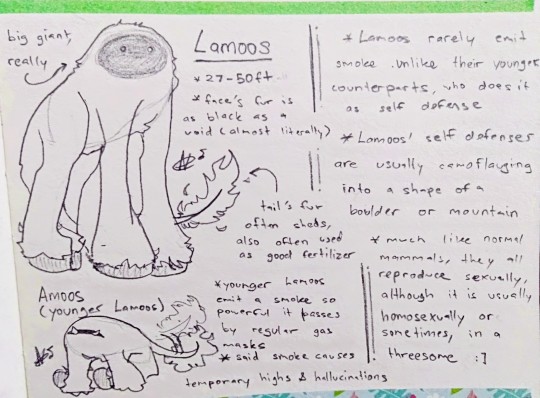 big giant,
really
Lamoos
* 27-50ft
* face's fur is
as black as a
void (almost literally)
tail's fur
often sheds,
also often used
as good fertilizer
Amoos
(younger Lamoos)
* younger Lamoos
emit a smoke so
powerful it passes
by regular gas
masks
* said smoke causes
temporary highs & hallucinations
* Lamoos rarely emit
smoke. unlike their younger
counterparts, who does it
as self defense
* Lamoos' self defenses
are usually camoflauging
into a shape of a
boulder or mountain
* much like normal
mammals, they all
reproduce sexually,
although it is usually
homosexually or
sometimes, in a
threesome :]